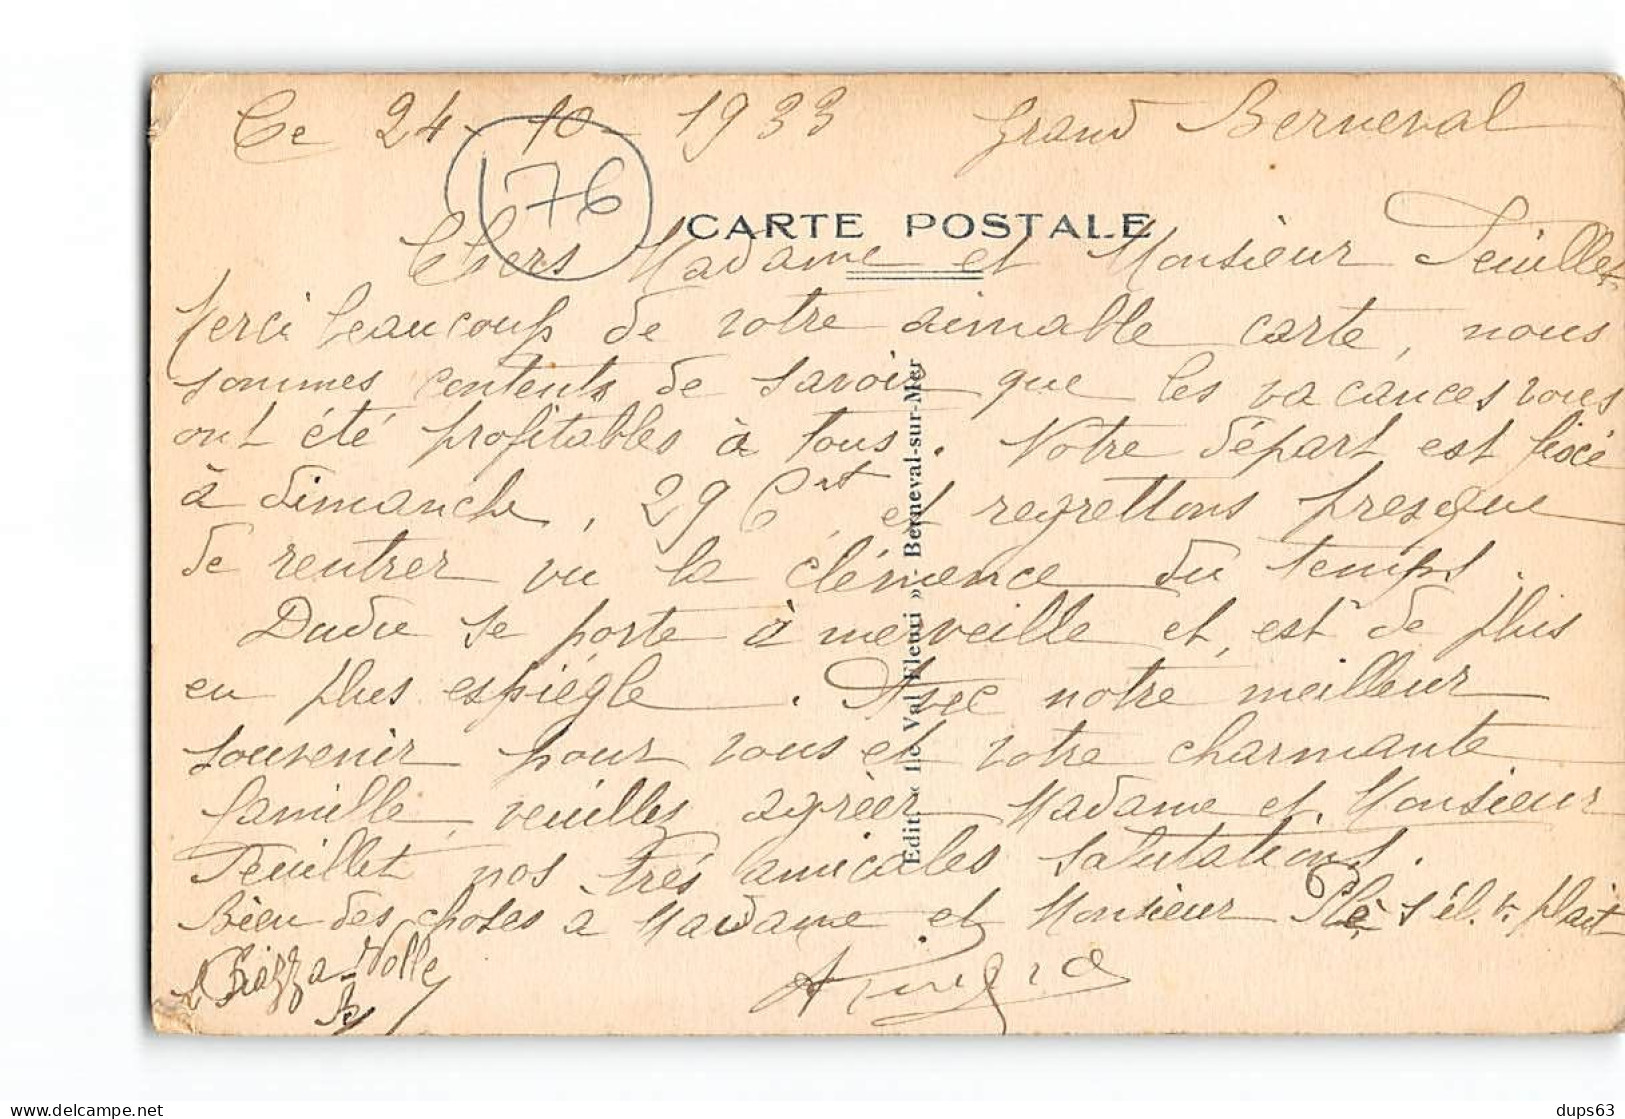 Ce 24-10-1933 Grand Berneval
176
CARTE POSTALE
Chers Madame et Monsieur Feuillet
Merci beaucoup de votre aimable carte, nous
sommes contents de savoir que les vacances vous
ont été profitables à tous. Notre départ est fixé
à dimanche, 29 Ct, et regrettons presque
de rentrer vu la clémence du temps.
Dudu se porte à merveille et, est de plus
en plus espiègle. Avec notre meilleur
souvenir pour vous et votre charmante
famille, veuilles agréer Madame et Monsieur
Feuillet nos très amicales salutations.
Bien des choses à Madame et Monsieur s'il. v. plait
Edit. « Le Val Fleuri » - Berneval-sur-Mer
dups63